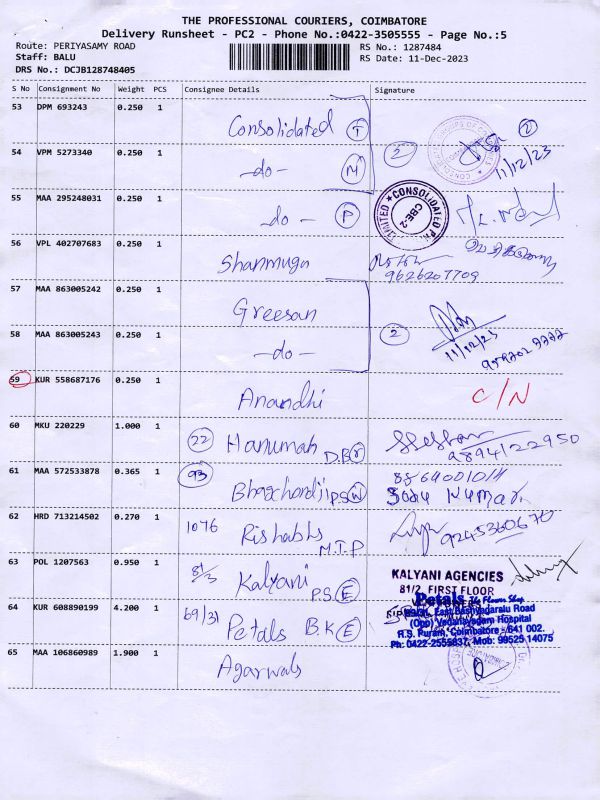 THE PROFESSIONAL COURIERS, COIMBATORE
Delivery Runsheet - PC2 - Phone No.:0422-3505555 - Page No.:5
Route: PERIYASAMY ROAD
Staff: BALU
DRS No.: DCJB128748405
RS No.: 1287484
RS Date: 11-Dec-2023
S No Consignment No Weight PCS Consignee Details Signature
53 DPM 693243 0.250 1 Consolidated T
2
2
11/12/23
54 VPM 5273340 0.250 1 -do- M
55 MAA 295248031 0.250 1 -do- P
CONSOLIDATED
CBE-2
56 VPL 402707683 0.250 1 Shanmuga
9626207709
57 MAA 863005242 0.250 1 Greesan
58 MAA 863005243 0.250 1 -do-
2
11/12/23
59 KUR 558687176 0.250 1 Anandhi C/N
60 MKU 220229 1.000 1 22 Hanuman D.B
9894122950
61 MAA 572533878 0.365 1 93 P.S
Kumar
62 HRD 713214502 0.270 1 1076 Rishabhs M.T.P
63 POL 1207563 0.950 1 81/3 Kalyani P.S E
KALYANI AGENCIES
81/2, FIRST FLOOR
64 KUR 608890199 4.200 1 69/31 Petals B.K E
Petals The Flower Shop
69/31, East Bashyagaralu Road
(Opp) Vedanayagam Hospital
R.S. Puram, Coimbatore - 641 002.
Ph: 0422-2555837, Mob: 99525 14075
65 MAA 106860989 1.900 1 Agarwals